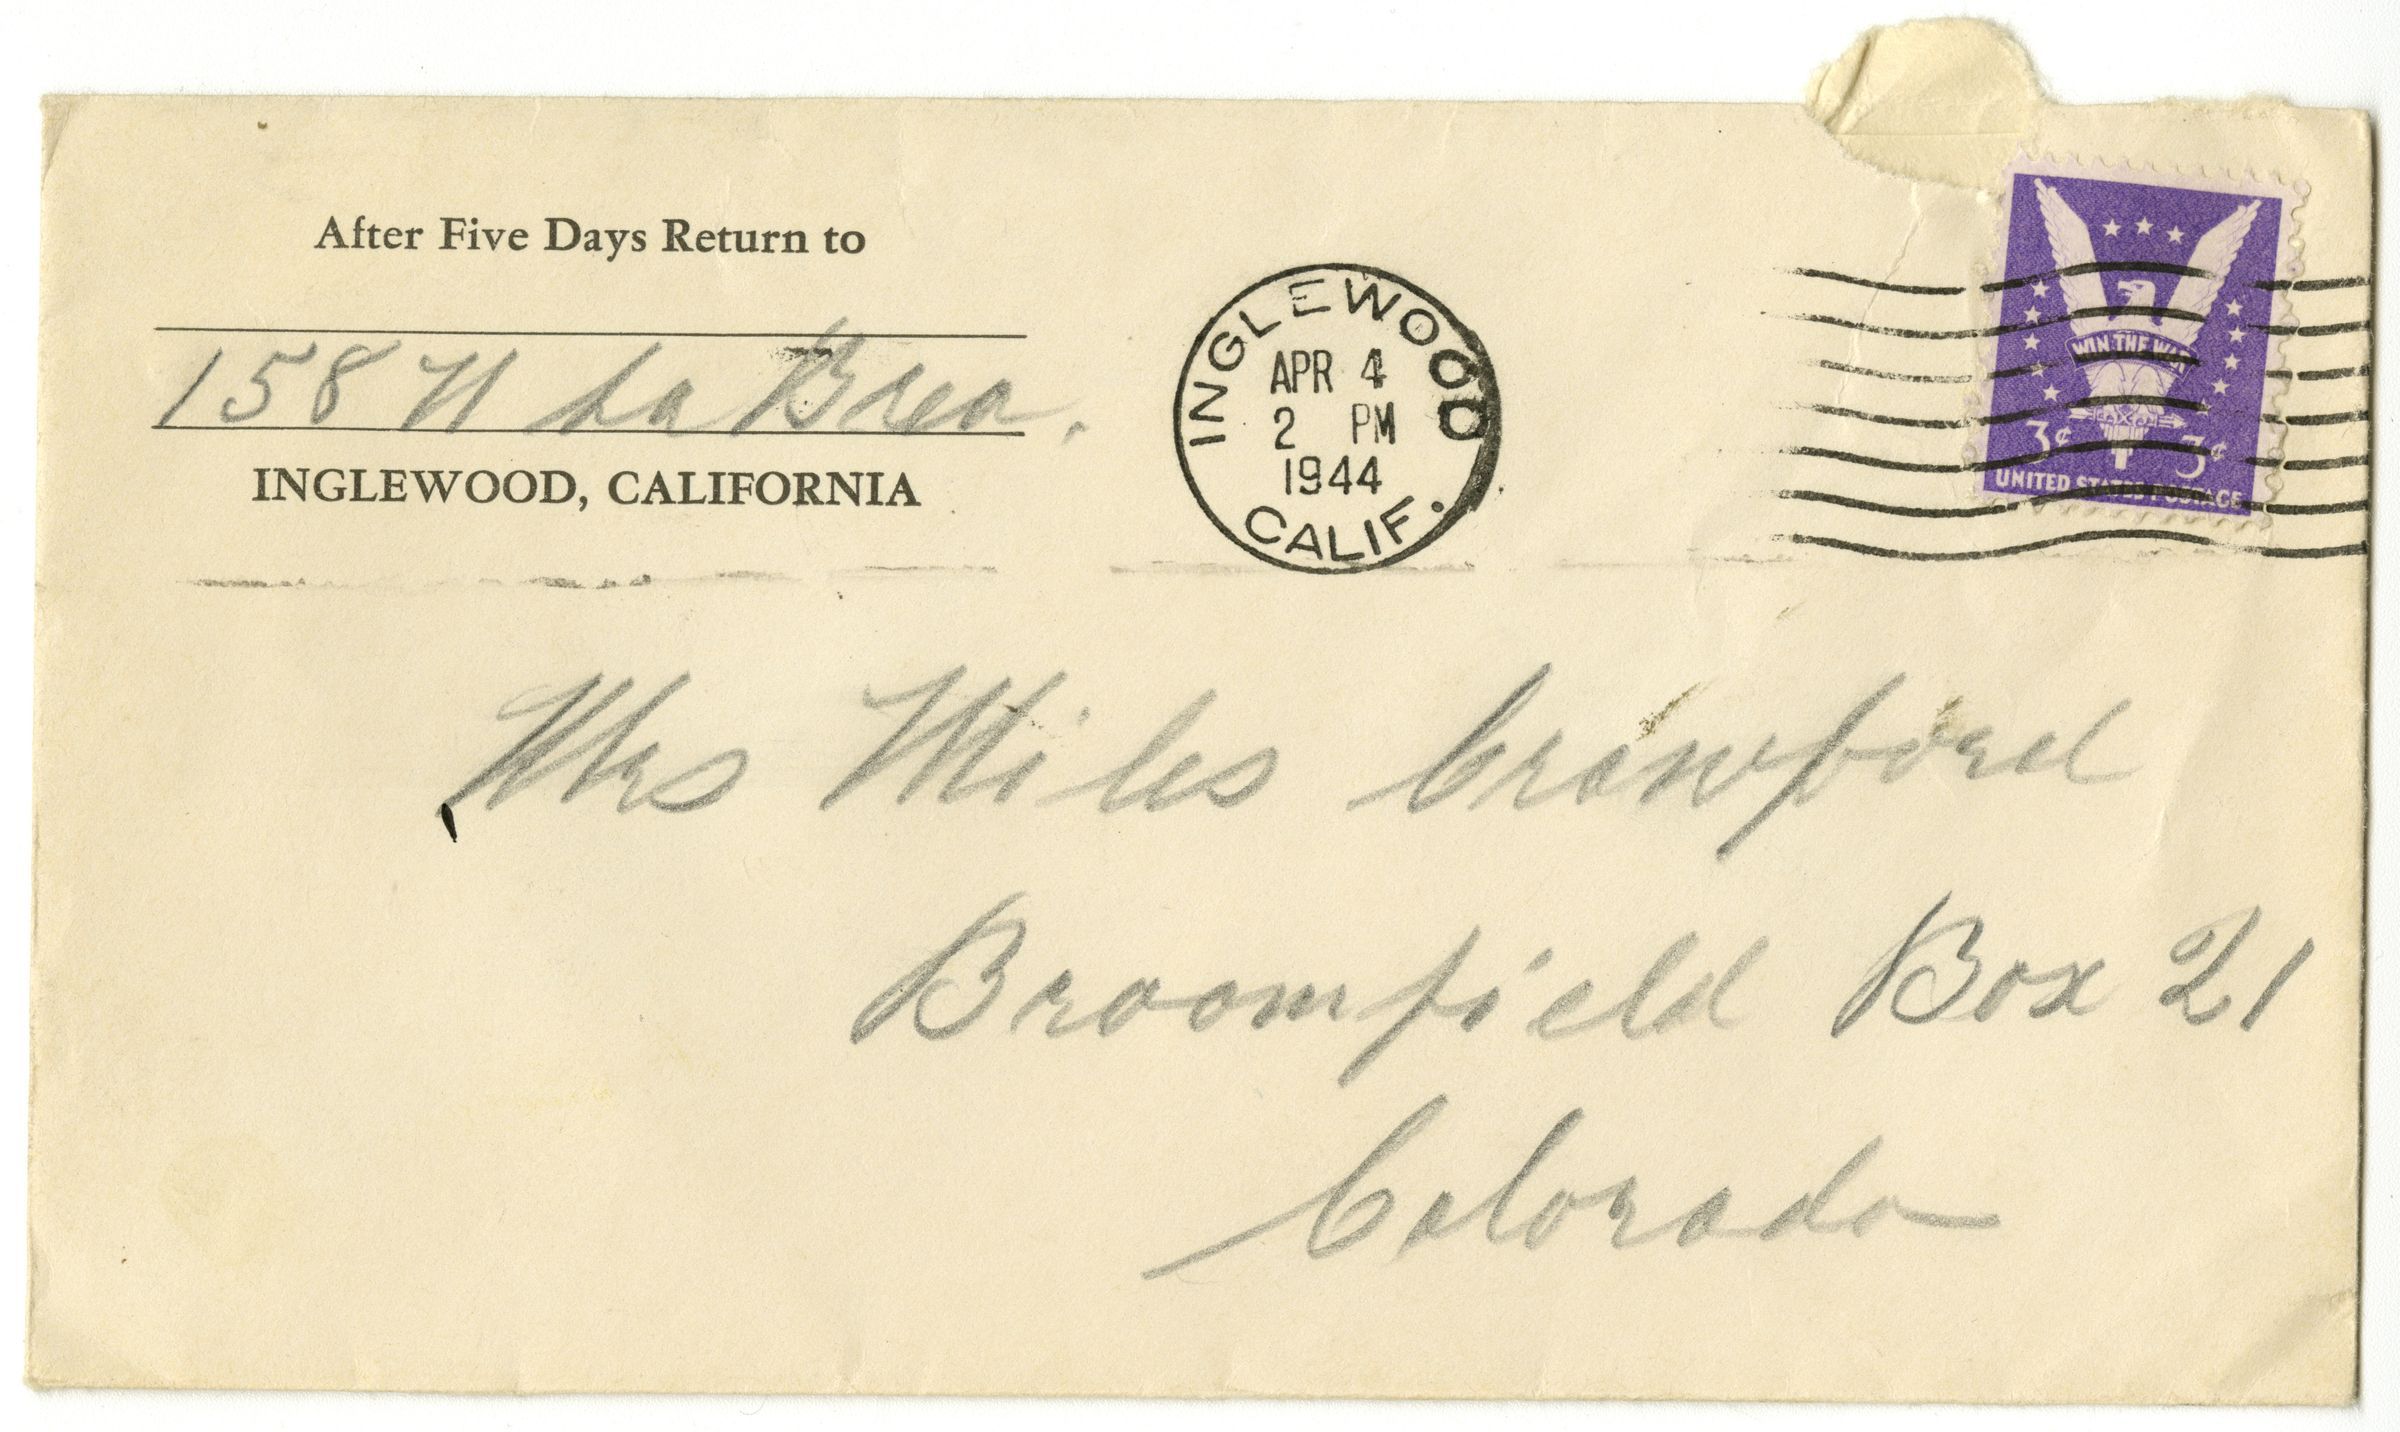 After Five Days Return to
158 N La Brea.
INGLEWOOD, CALIFORNIA
INGLEWOOD
APR 4
2 PM
1944
CALIF.
WIN THE WAR
3¢ 3¢
UNITED STATES POSTAGE
Mrs Miles Crawford
Broomfield Box 21
Colorado